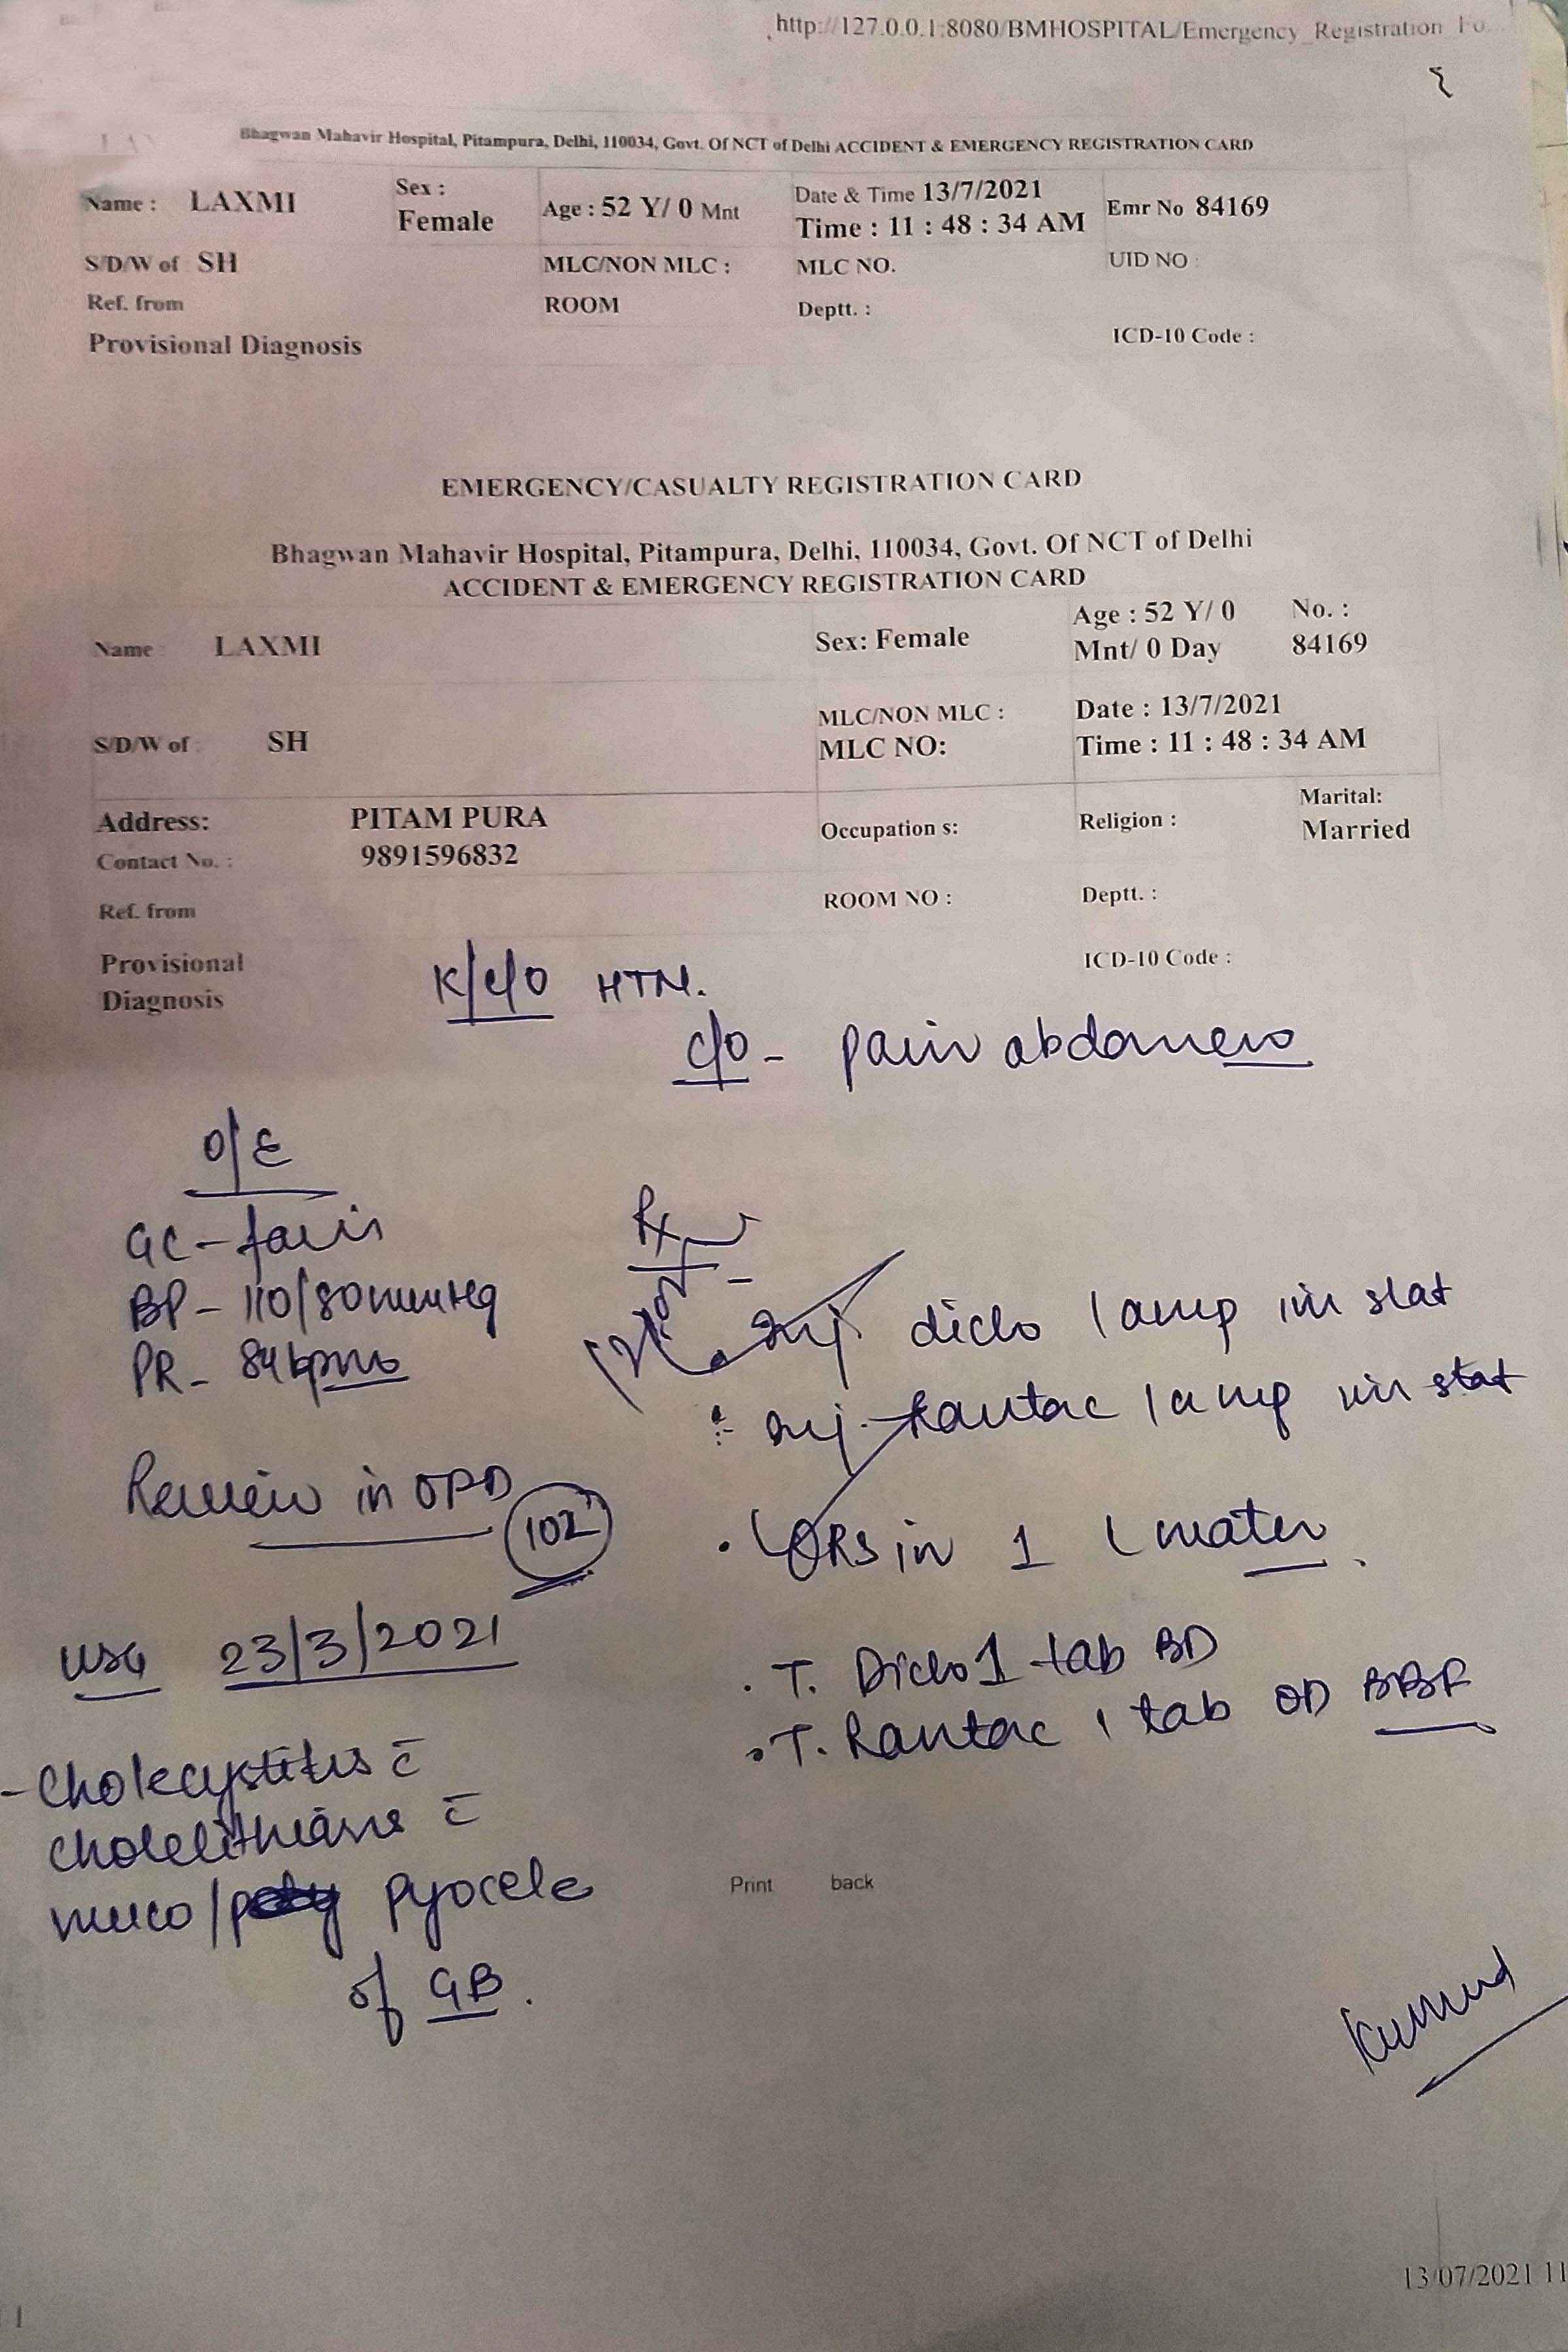 http://127.0.0.1:8080/BMHOSPITAL/Emergency_Registration_Fo...
Bhagwan Mahavir Hospital, Pitampura, Delhi, 110034, Govt. Of NCT of Delhi ACCIDENT & EMERGENCY REGISTRATION CARD
Name : LAXMI Sex : Female Age : 52 Y/ 0 Mnt Date & Time 13/7/2021 Time : 11 : 48 : 34 AM Emr No 84169
S/D/W of SH MLC/NON MLC : MLC NO. UID NO :
Ref. from ROOM Deptt. :
Provisional Diagnosis ICD-10 Code :
EMERGENCY/CASUALTY REGISTRATION CARD
Bhagwan Mahavir Hospital, Pitampura, Delhi, 110034, Govt. Of NCT of Delhi
ACCIDENT & EMERGENCY REGISTRATION CARD
Name : LAXMI Sex: Female Age : 52 Y/ 0 Mnt/ 0 Day No. : 84169
S/D/W of : SH MLC/NON MLC : MLC NO: Date : 13/7/2021 Time : 11 : 48 : 34 AM
Address: PITAM PURA Occupation s: Religion : Marital: Married
Contact No. : 9891596832
Ref. from ROOM NO : Deptt. :
Provisional Diagnosis ICD-10 Code :
K/c/o HTN.
c/o - pain abdomen
O/E
GC - fair
BP - 110/80mmHg
PR - 84bpm
Review in OPD 102
USG 23/3/2021
- Cholecystitis c̄
cholelithiasis c̄
muco/ pyocele
of GB.
Rx
Inj. diclo 1 amp im stat
Inj. Rantac 1 amp im stat
. ORS in 1 L water.
. T. Diclo 1 tab BD
. T. Rantac 1 tab OD BBF
Print back
Kumud
13/07/2021 11
1